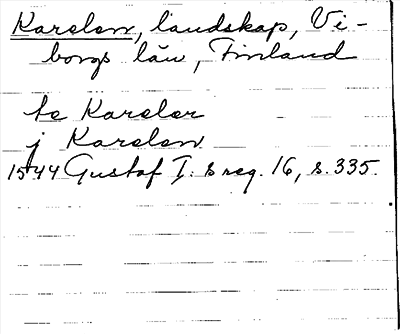 Karelen, landskap, Vi-
borgs län, Finland
te Kareler
j Karelen
1544 Gustaf I:s reg. 16, s. 335.